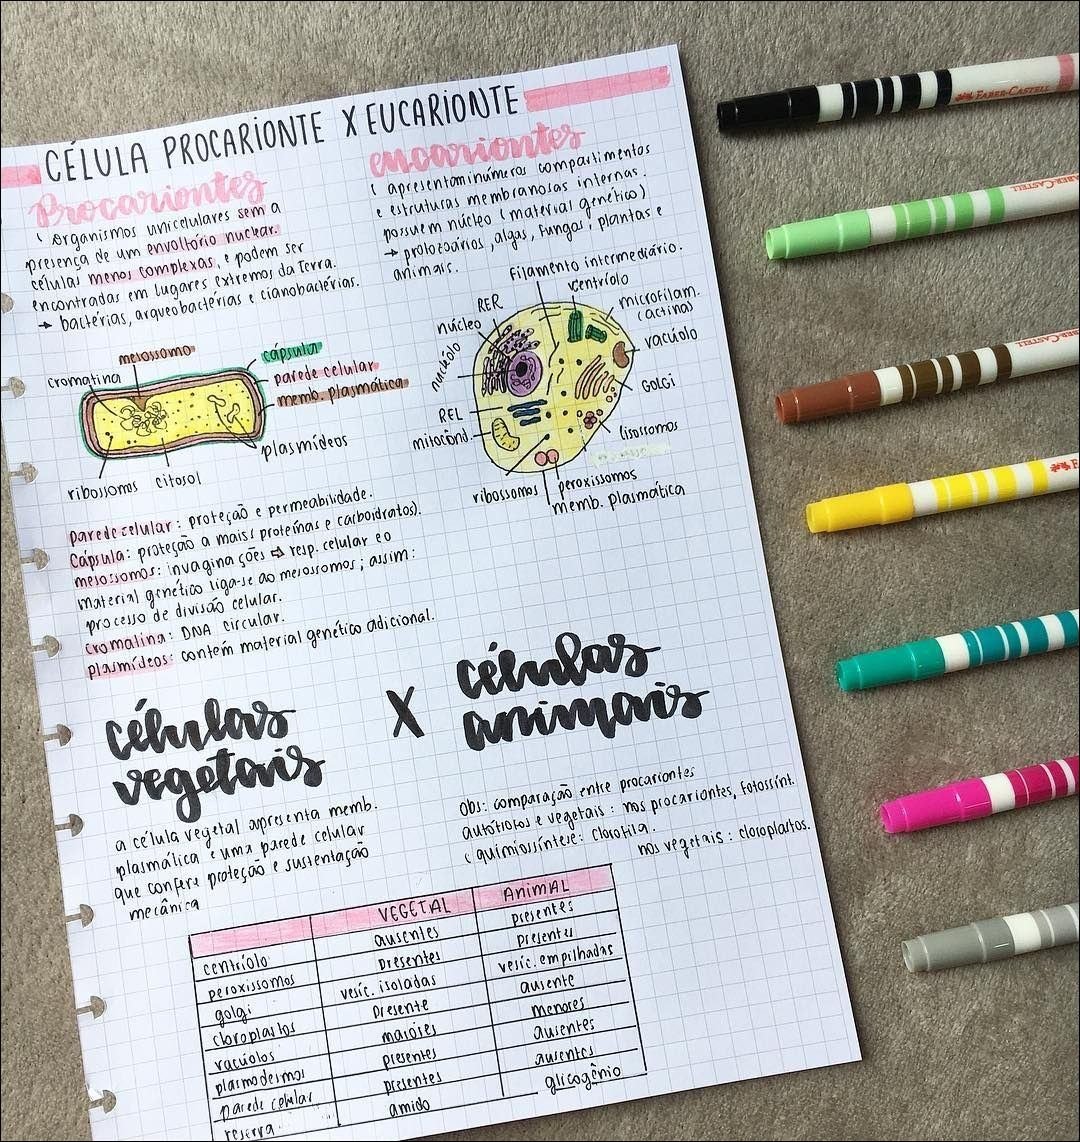 CÉLULA PROCARIONTE X EUCARIONTE
Procariontes
organismos unicelulares sem a
presença de um envoltório nuclear.
células menos complexas, e podem ser
encontradas em lugares extremos da Terra.
→ bactérias, arqueobactérias e cianobactérias.
eucariontes
apresentam inúmeros compartimentos
e estruturas membranosas internas.
possuem núcleo (material genético)
→ protozoários, algas, fungos, plantas e
animais.
mesossomo
cromatina
cápsula
parede celular
memb. plasmática
plasmídeos
ribossomos
citosol
Filamento intermediário.
ventríolo
RER
microfilam.
(actina)
núcleo
vacúolo
nucléolo
GOLGI
REL
mitocônd.
lisossomos
ribossomos
peroxissomos
memb. plasmática
parede celular: proteção e permeabilidade.
Cápsula: proteção a mais (proteínas e carboidratos).
mesossomos: invaginações ⇨ resp. celular e o
material genético liga-se ao mesossomos; assim:
processo de divisão celular.
cromatina: DNA circular.
plasmídeos: contém material genético adicional.
células
vegetais
X
células
animais
a célula vegetal apresenta memb.
plasmática e uma parede celular
que confere proteção e sustentação
mecânica
Obs: comparação entre procariontes
autótrofos e vegetais: nos procariontes, fotossínt.
(quimiossíntese: clorofila.
nos vegetais: cloroplastos.
VEGETAL ANIMAL
centríolo ausentes presentes
peroxissomos presentes presentes
golgi vesíc. isoladas vesíc. empilhadas
cloroplastos presente ausente
vacúolos maiores menores
plasmodesmos presentes ausentes
parede celular presentes ausentes
reserva amido glicogênio
FABER-CASTELL
FABER-CASTELL